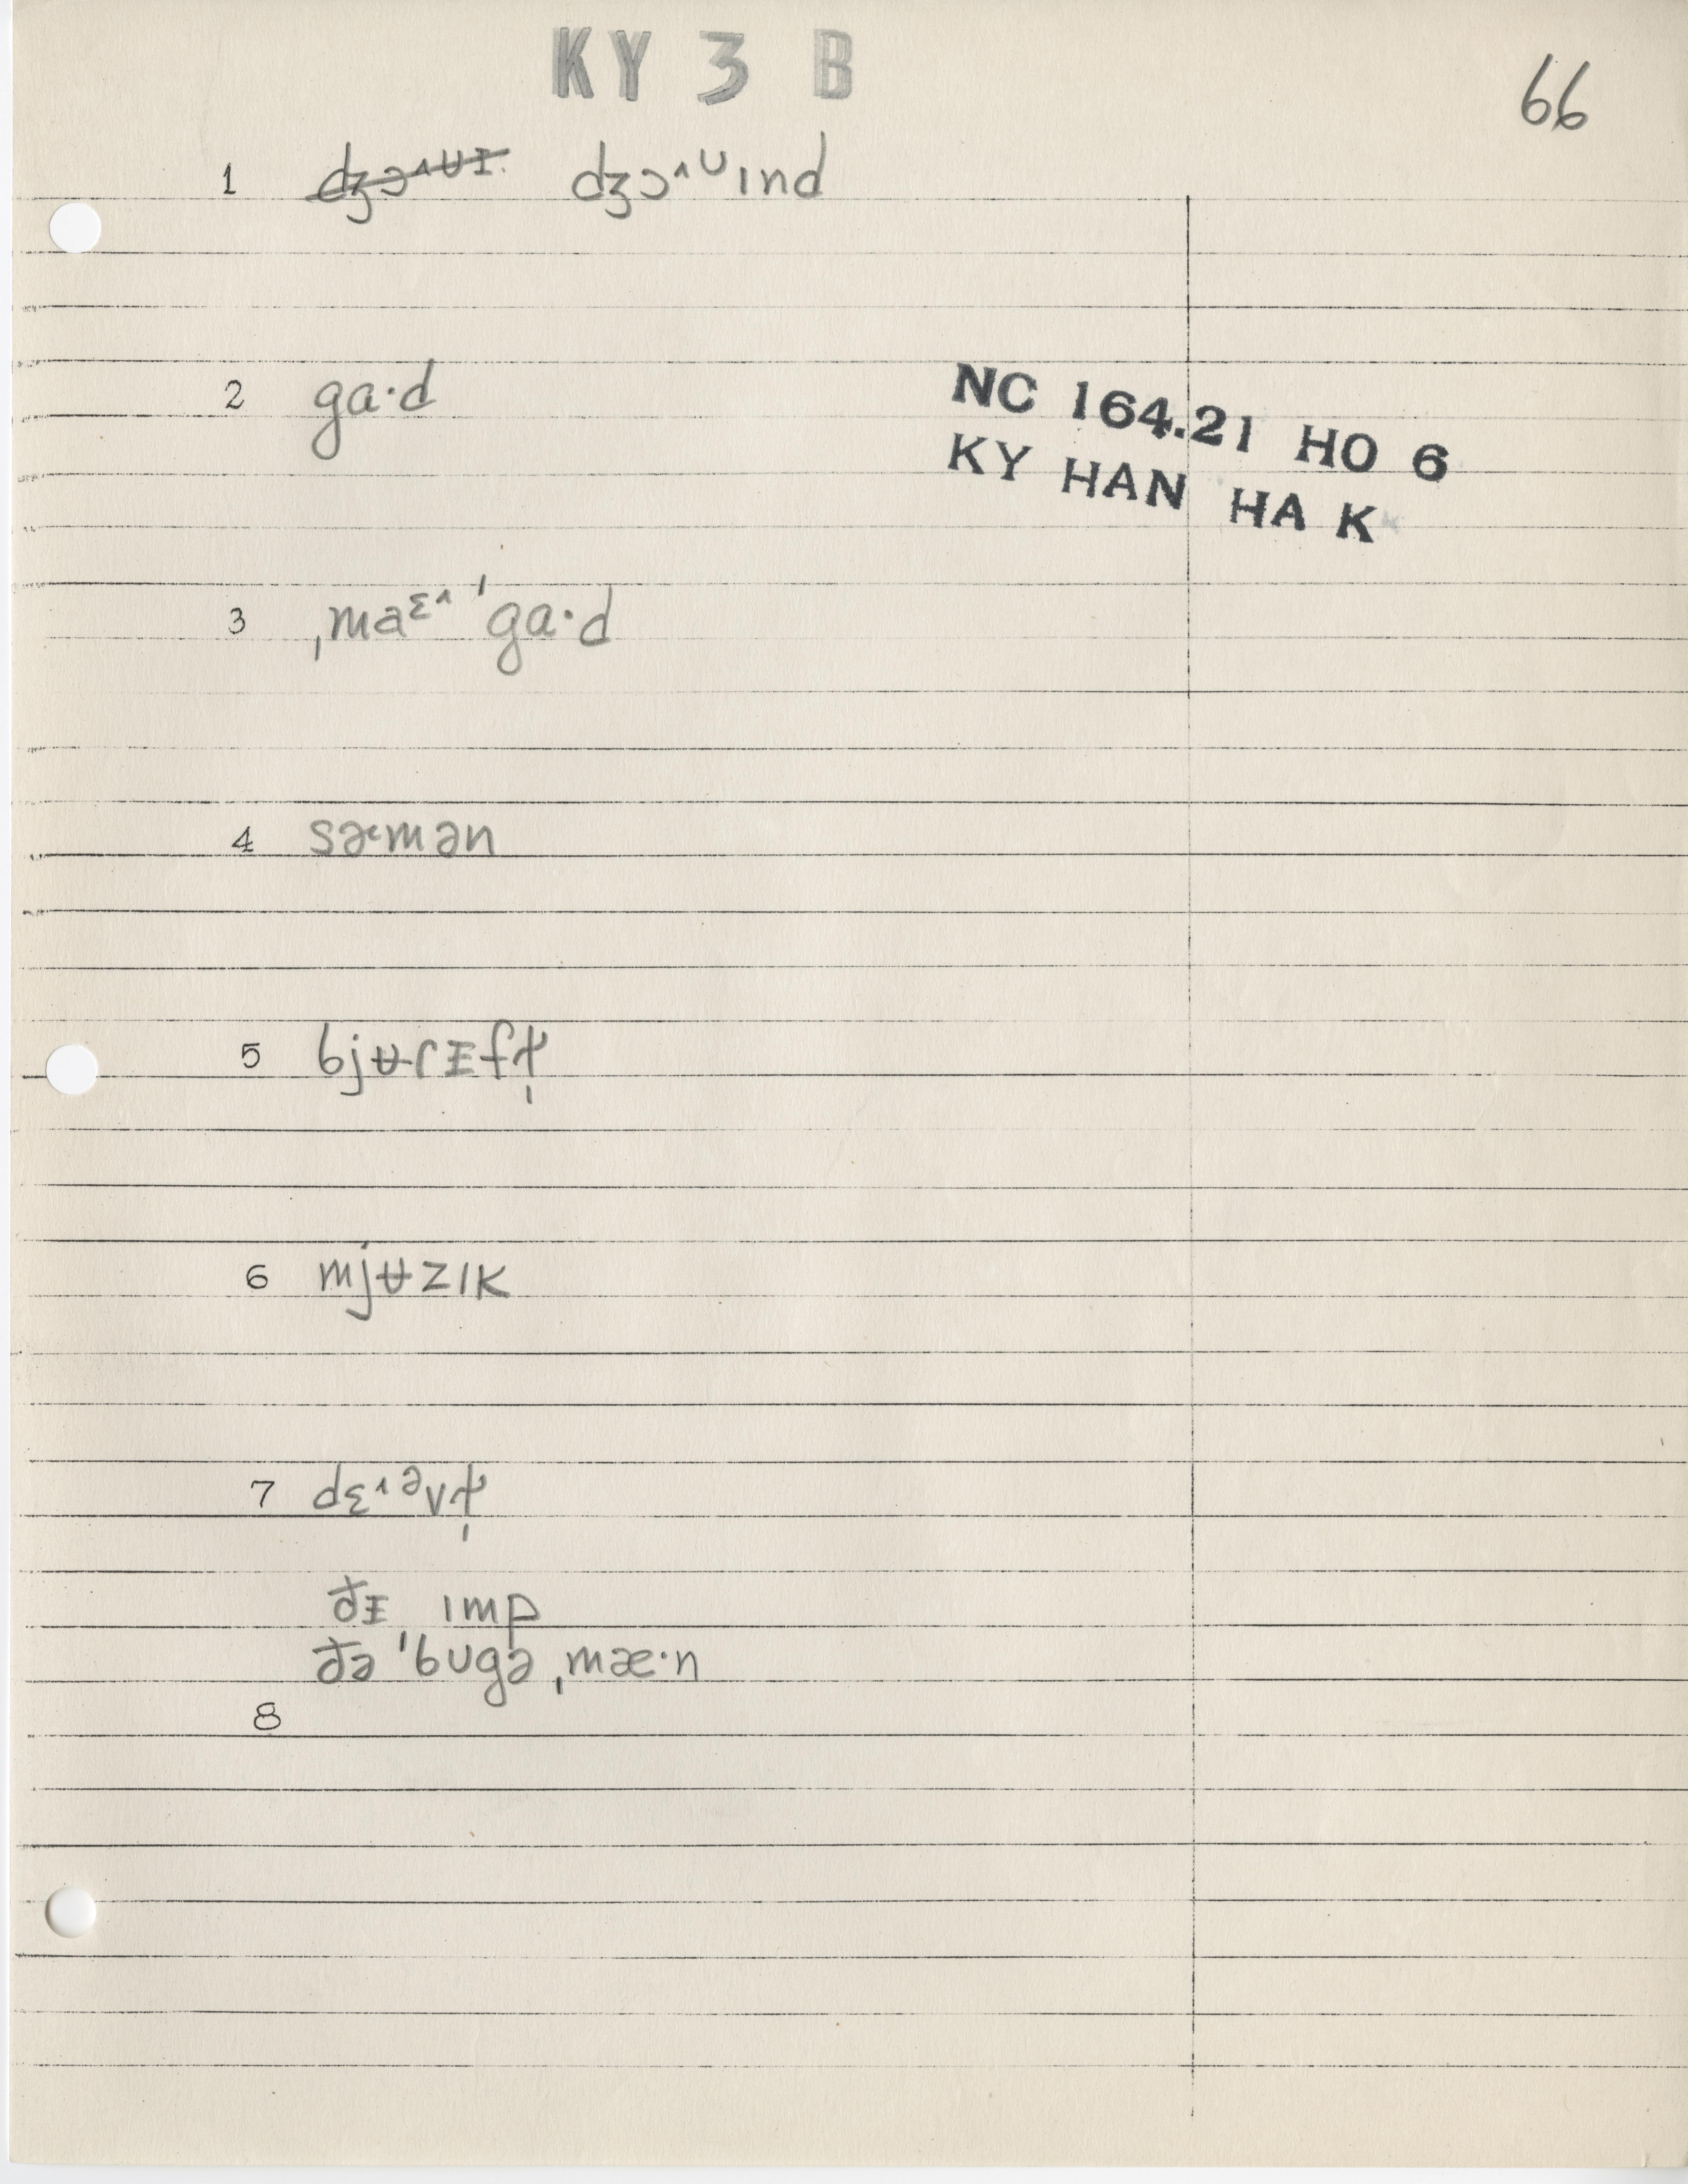 KY 3 B
66
1 dʒɔ˄ᶷɪnd
2 ga·d
NC 164.21 HO 6
KY HAN HA K
3 ˌmaᵋ˄ ˈga·d
4 sə˂mən
5 bjʉrᵻfɫ̩
6 mjʉzɪk
7 dɛ˄ᵊvɫ̩
ðᵻ ɪmp
ðə ˈbʊgə ˌmæ·n
8